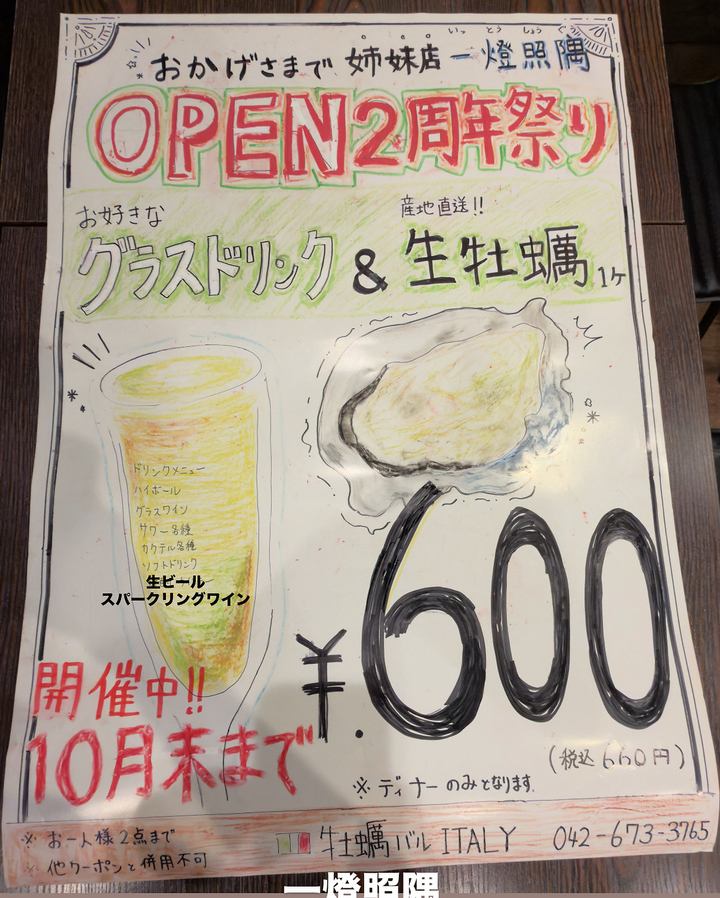 おかげさまで 姉妹店 一燈照隅
いっとうしょうぐう
OPEN2周年祭り
お好きな
グラスドリンク & 生牡蠣 1ヶ
産地直送!!
ドリンクメニュー
ハイボール
グラスワイン
サワー各種
カクテル各種
ソフトドリンク
生ビール
スパークリングワイン
¥.600
(税込660円)
開催中!!
10月末まで
※ ディナーのみとなります.
※ お一人様2点まで
※ 他クーポンと併用不可
牡蠣バル ITALY 042-673-3765
一燈照隅